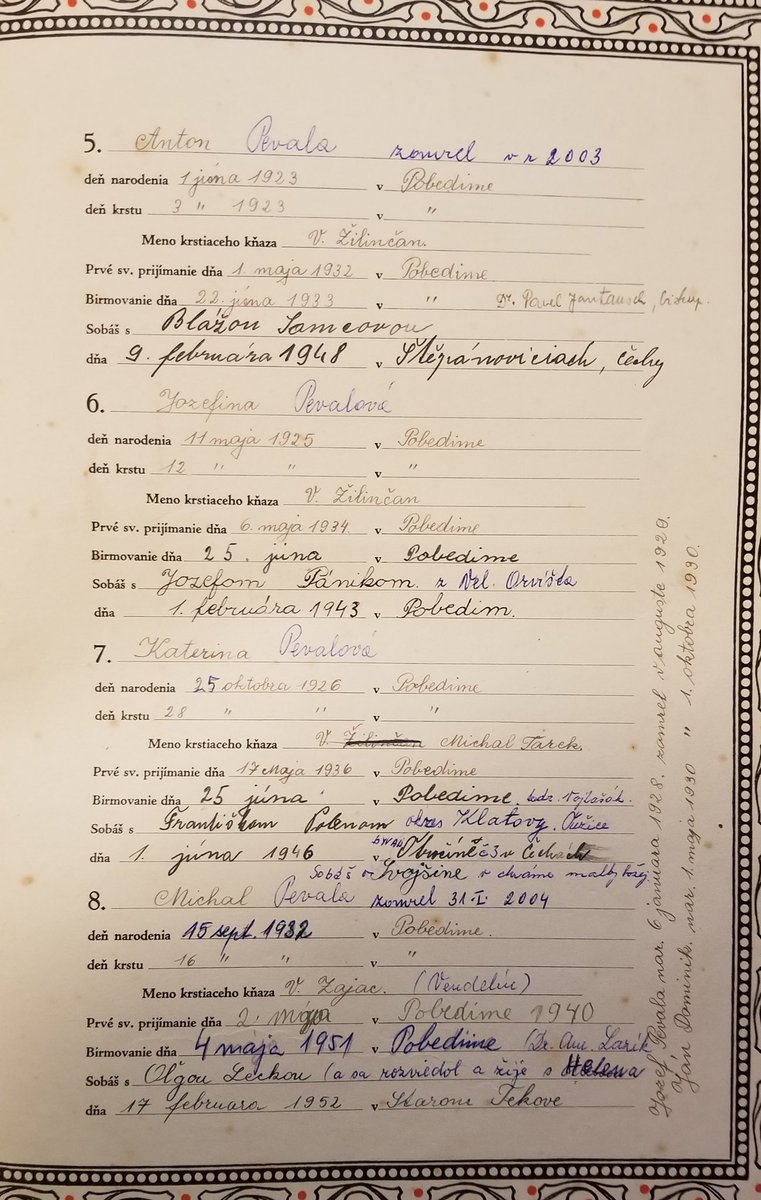 5. Anton Pevala zomrel v r 2003
deň narodenia 1 júna 1923 v Pobedime
deň krstu 3 " 1923 v "
Meno krstiaceho kňaza V. Žilinčan.
Prvé sv. prijímanie dňa 1. mája 1932 v Pobedime
Birmovanie dňa 22. júna 1933 v " Dr. Pavel Jantausch, biskup.
Sobáš s Blážou Samcovou
dňa 9. februára 1948 v Štěpánoviciach, Čechy
6. Jozefina Pevalová
deň narodenia 11 maja 1925 v Pobedime
deň krstu 12 " " v "
Meno krstiaceho kňaza V. Žilinčan
Prvé sv. prijímanie dňa 6. maja 1934. v Pobedime
Birmovanie dňa 25. júna v Pobedime
Sobáš s Jozefom Pánikom. z Vel. Orvišťa
dňa 1. februára 1943 v Pobedim.
7. Katerina Pevalová
deň narodenia 25 oktobra 1926 v Pobedime
deň krstu 28 " " v "
Meno krstiaceho kňaza V. Žilinčan Michal Tárek.
Prvé sv. prijímanie dňa 17 Maja 1936 v Pobedime
Birmovanie dňa 25 júna v Pobedime. Vojtašák.
Sobáš s Františkom okres Klatovy,
dňa 1. júna 1946 v č3 v Čechách
Sobáš v Svojšine v chráme matky božej
8. Michal Pevala zomrel 31-I- 2004
deň narodenia 15 sept. 1932 v Pobedime.
deň krstu 16 " " v "
Meno krstiaceho kňaza V. Zajac. (Vendelín)
Prvé sv. prijímanie dňa 2. Mája v Pobedime 1940
Birmovanie dňa 4 mája 1951 v Pobedime (Dr. Am. Lazík
Sobáš s Oľgou Leckou (a sa rozviedol a žije s Helena
dňa 17 februara 1952 v Starom Tekove
Jozef Pevala nar. 6 januára 1928. zomrel v auguste 1929.
Ján Dominik. nar. 1. maja 1930 " 1. oktobra 1930.